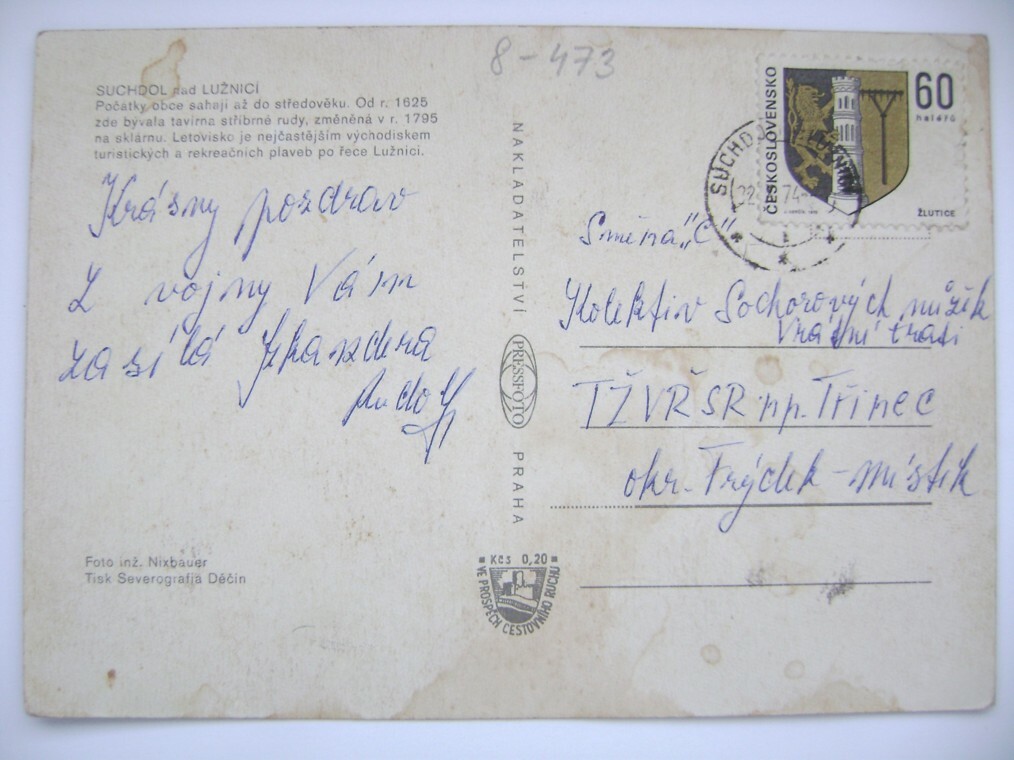 8-473
SUCHDOL nad LUŽNICÍ
Počátky obce sahají až do středověku. Od r. 1625
zde bývala tavírna stříbrné rudy, změněná v r. 1795
na sklárnu. Letovisko je nejčastějším východiskem
turistických a rekreačních plaveb po řece Lužnici.
Krásny pozdrav
Z vojny Vám
zasílá
Foto inž. Nixbauer
Tisk Severografia Děčín
NAKLADATELSTVÍ
PRESSFOTO
PRAHA
Kčs 0,20
VE PROSPĚCH CESTOVNÍHO RUCHU
ČESKOSLOVENSKO
60
haléřů
ŽLUTICE
SUCHDOL
74
Směna "C"
Kolektiv Sochorových
trati
TŽVŘSR np. Třinec
okr. Frýdek-místek